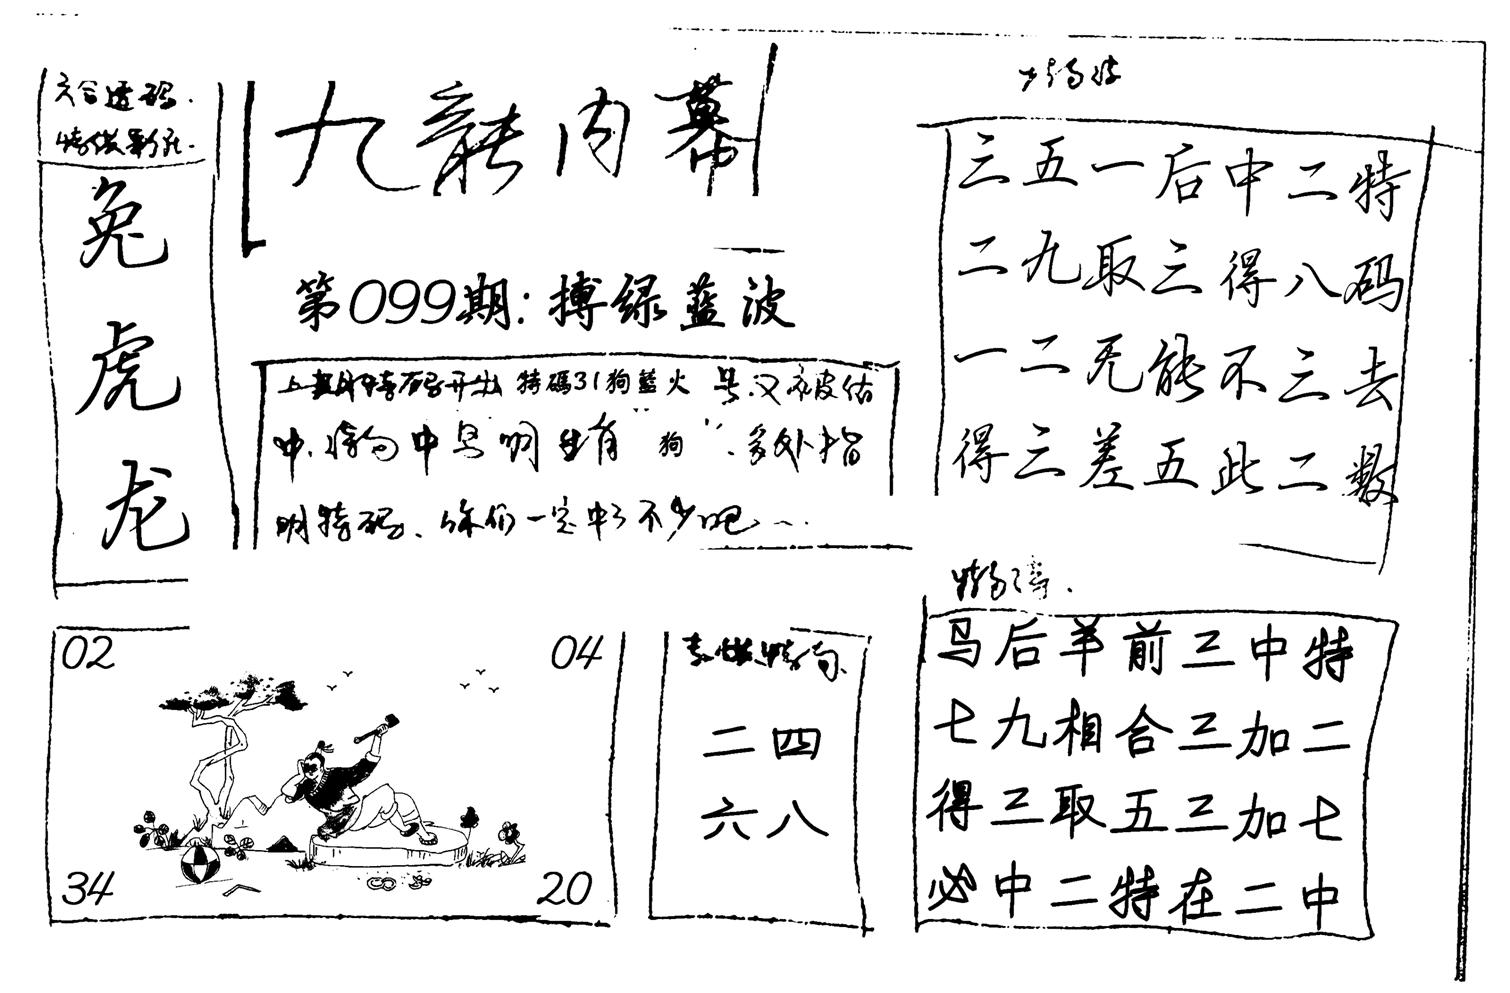 六合透码.
九龙内幕
兔
虎
龙
第099期:搏绿蓝波
特码开出 特碼31狗藍火
中 中 明生肖“狗”. 多处指
明特码、你们一定中了不少吧
三五一后中二特
二九取三得八码
一二无能不三去
得三差五此二数
02
04
34
20
二四
六八
马后羊前三中特
七九相合三加二
得三取五三加七
必中二特在二中